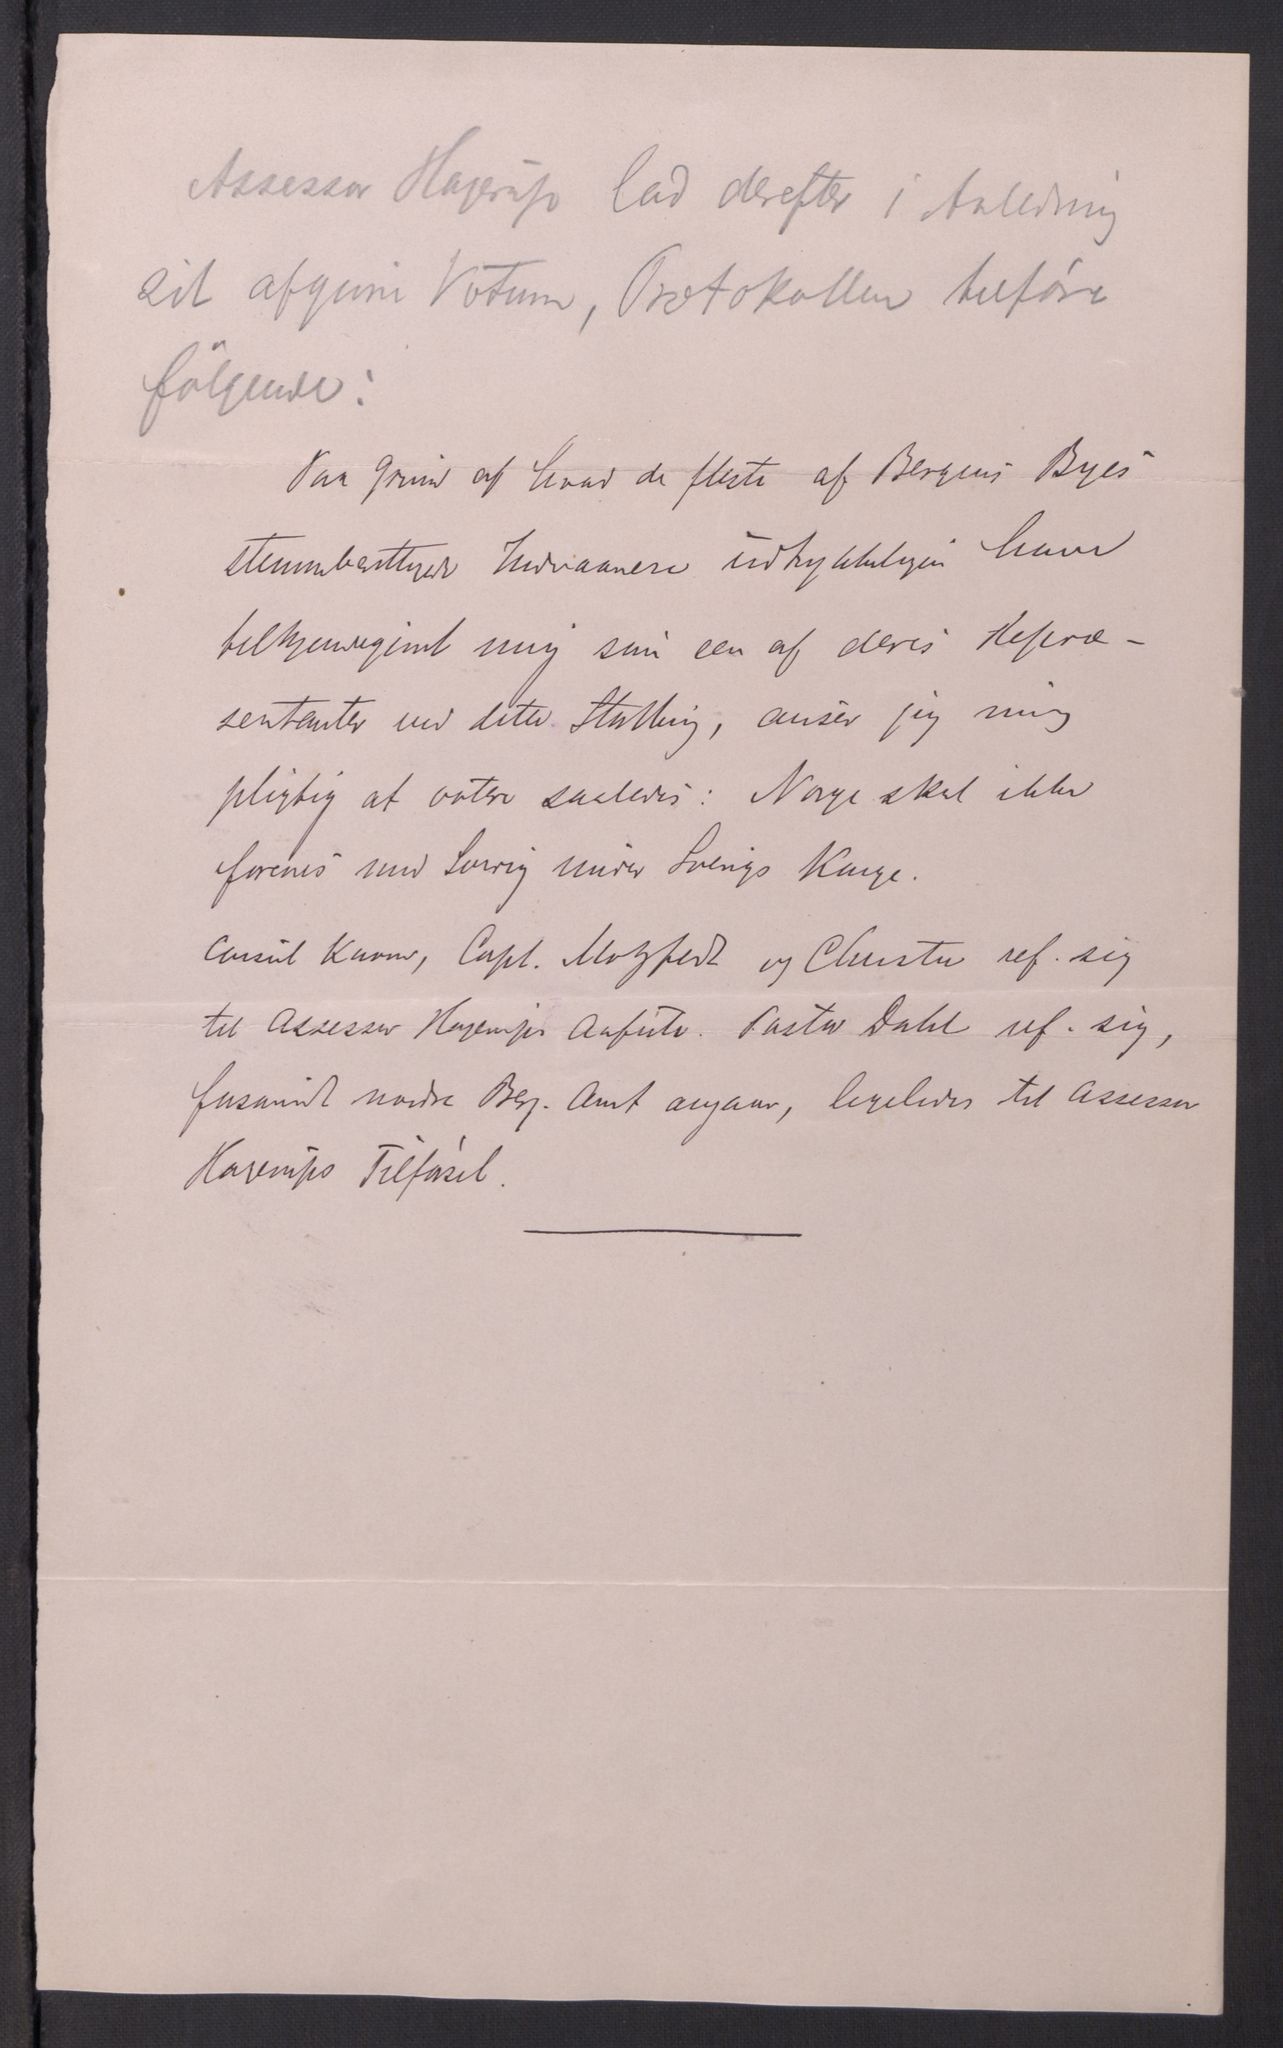 Assessor Hagerup lod derefter i Anledning
sit afgivne Votum, Protokollen tilføre
følgende:
Paa Grund af hvad de fleste af Bergens Byes
stemmeberettigede Indvaanere udtrykkeligen have
tilkjendegivet mig som een af deres Repræ-
sentanter ved dette Storthing, anser jeg mig
pligtig at votere saaledes: Norge skal ikke
forenes med Sverrig under Sverigs Konge.
Consul Konow, Capt. Motzfeldt og Christie ref. sig
til Assessor Hagerups Anførte. Pastor Dahl ref. sig,
forsaavidt nordre Berg. Amt angaaer, ligeledes til Assessor
Hagerups Tilførsel.